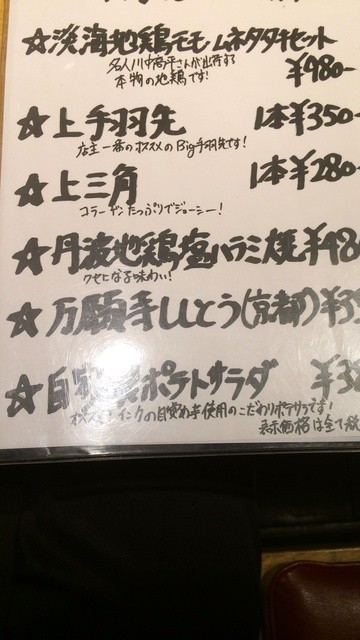 ☆淡海地鶏モモムネタタキセット
名人川中高平さんが出荷する
本物の地鶏です!
¥980-
☆上手羽先 1本¥350-
店主一番のオススメのBig手羽先です!
☆上三角 1本¥280-
コラーゲンたっぷりでジューシー!
☆丹波地鶏塩ハラミ焼¥48
クセになる味わい!
☆万願寺ししとう(京都)¥3
☆自家製ポテトサラダ ¥38
の自家製 使用のこだわりポテサラです!
表示価格は全て税